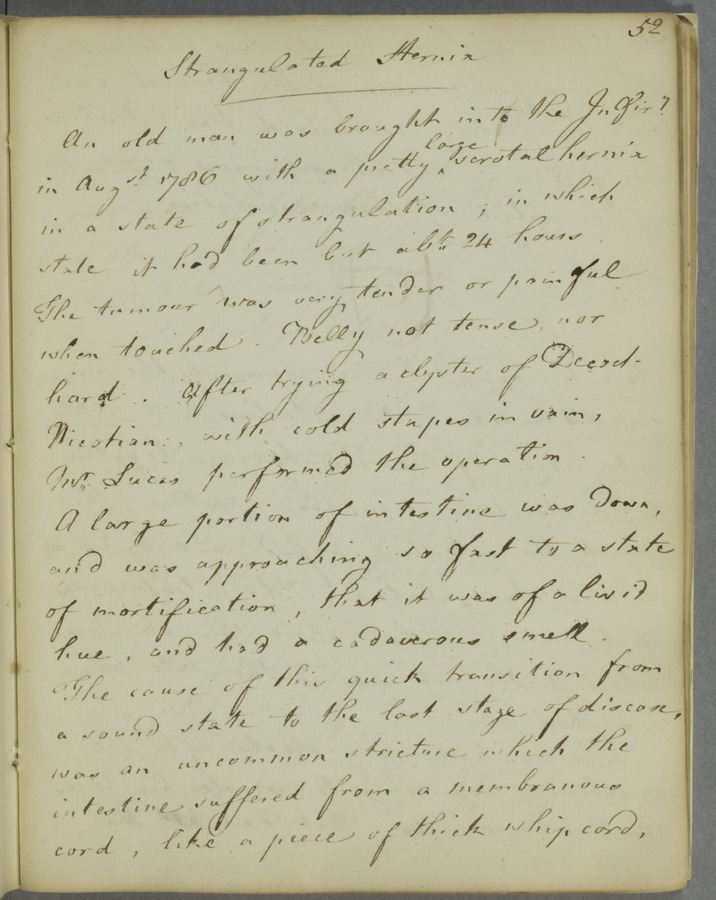 52
Strangulated Hernia
An old man was brought into the Infir.y
in Augst. 1786 with a pretty large scrotal hernia
in a state of strangulation; in which
state it had been but abt. 24 hours.
The tumour was very tender or painful
when touched. Belly not tense, nor
hard. After trying a clyster of Decoct.
Nicotian:, with cold stupes in vain,
Mr. Lucas performed the operation.
A large portion of intestine was down,
and was approaching so fast to a state
of mortification, that it was of a livid
hue, and had a cadaverous smell.
The cause of this quick transition from
a sound state to the last stage of disease,
was an uncommon stricture which the
intestine suffered from a membranous
cord, like a piece of thick whip cord,